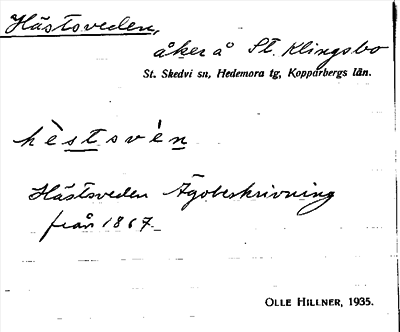 Hästsveden,
åker å St. Klingsbo
St. Skedvi sn, Hedemora tg, Kopparbergs län.
hè̀stsvè́n
Hästsveden Ägobeskrivning
från 1867
OLLE HILLNER, 1935.